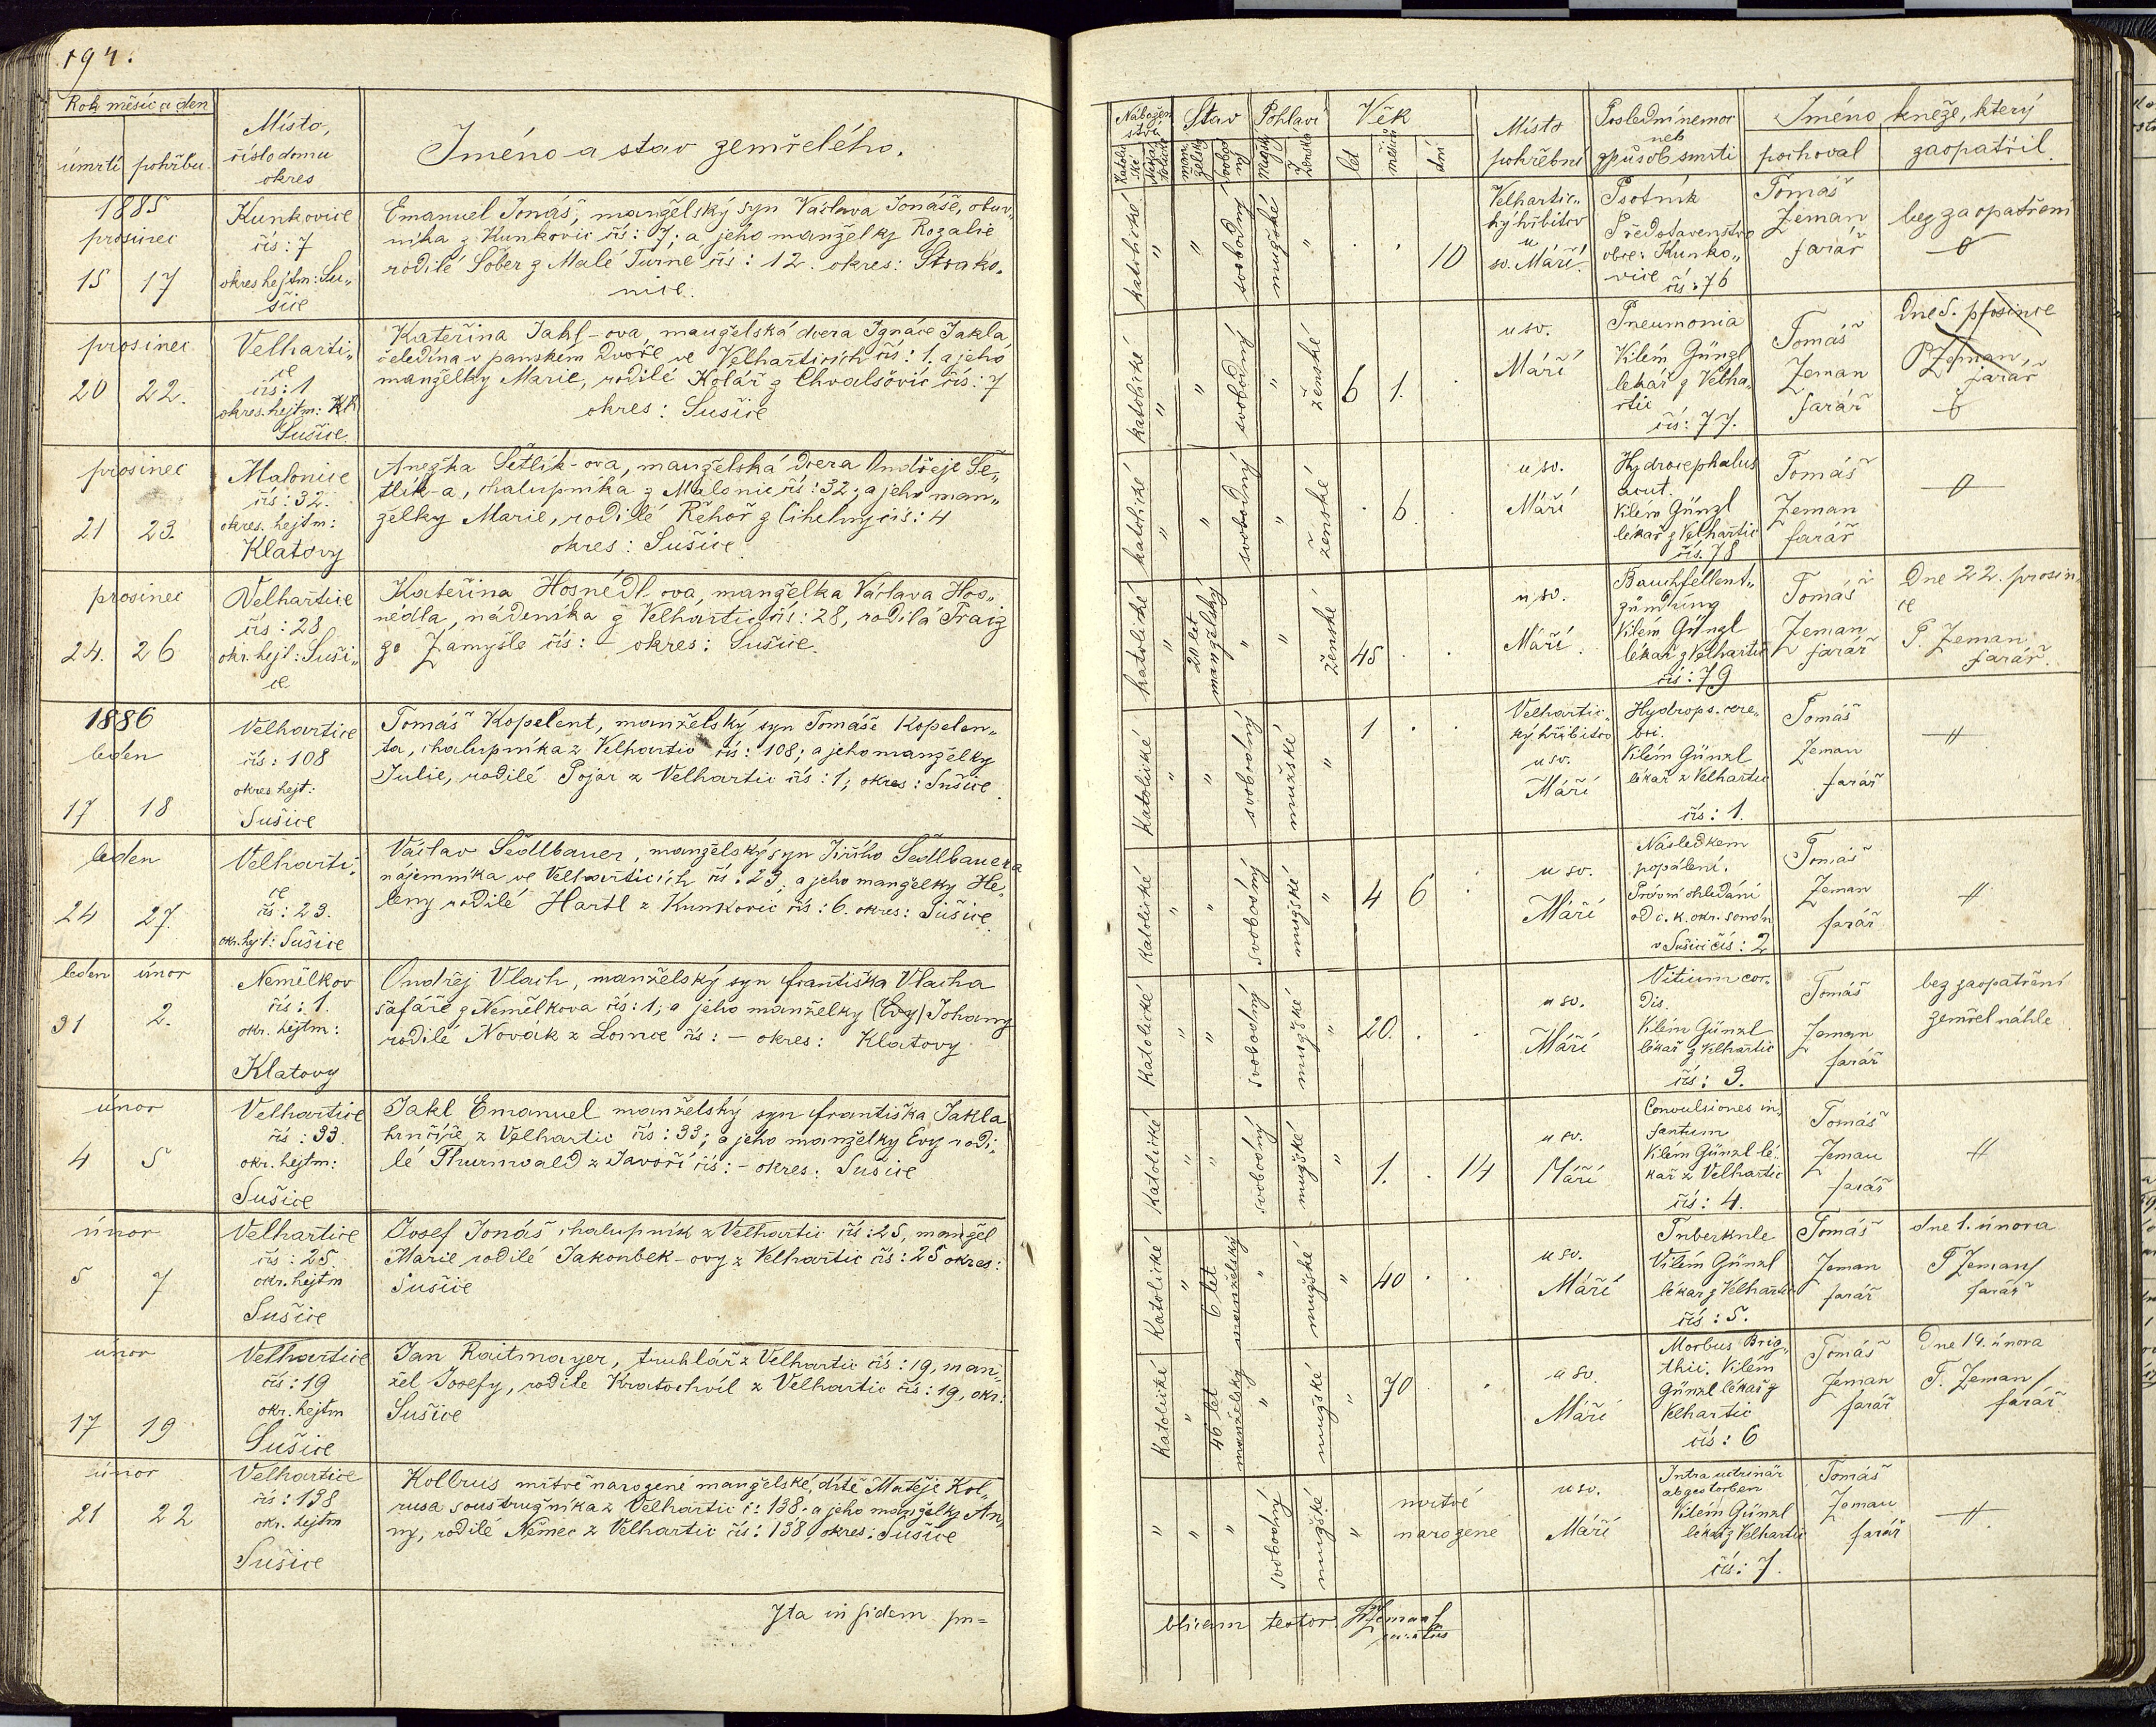 194.
Rok měsíc a den
úmrtí pohřbu
Místo,
číslo domu
okres
Jméno a stav zemřelého.
1885
prosinec
15 17
Kunkovice
čís: 7
okres hejtm: Su„
šice
Emanuel Jonáš, manželský syn Václava Jonáše, obuv„
níka z Kunkovic čís: 7; a jeho manželky Rozalie
rodilé Šober z Malé Turné čís: 12. okres: Strako„
nice.
prosinec
20 22.
Velharti„
ce
čís: 1
okres. hejtm:
Sušice.
Kateřina Jakl-ova, manželská dcera Ignáce Jakla,
čeledína v panském dvoře ve Velharticích čís: 1. a jeho
manželky Marie, rodilé Kolář z Chvalšovic čís: 7
okres: Sušice
prosinec
21 23.
Malonice
čís: 32.
okres. hejtm:
Klatovy
Anežka Šetlík-ova, manželská dcera Ondřeje Še„
tlík-a, chalupníka z Malonic čís: 32; a jeho man„
želky Marie, rodilé Řehoř z Cihelny čís: 4
okres: Sušice.
prosinec
24. 26
Velhartice
čís: 28
okr. hejt: Suši„
ce
Kateřina Hosnédl-ova, manželka Václava Hos„
nédla, nádeníka z Velhartic čís: 28, rodilá Traiz
ze Zamyšle čís: - okres: Sušice.
1886
leden
17 18
Velhartice
čís: 108
okres hejt:
Sušice
Tomáš Kopelent, manželský syn Tomáše Kopelen„
ta, chalupníka z Velhartic čís: 108; a jeho manželky
Julie, rodilé Pojar z Velhartic čís: 1; okres: Sušice.
leden
24 27.
Velharti„
ce
čís: 23.
okr. hejt: Sušice
Václav Sedlbauer, manželský syn Jiřího Sedlbauera
nájemníka ve Velharticích čís: 23, a jeho manželky He„
leny rodilé Hartl z Kunkovic čís: 6. okres: Sušice.
leden únor
31 2.
Nemělkov
čís: 1.
okr. hejtm:
Klatovy
Ondřej Vlach, manželský syn františka Vlacha
šafáře z Nemělkova čís: 1; a jeho manželky (Evy) Johany
rodilé Novák z Lomce čís: - okres: Klatovy
únor
4 5
Velhartice
čís: 33.
okr. hejtm:
Sušice
Jakl Emanuel manželský syn františka Jakla
hrnčíře z Velhartic čís: 33; a jeho manželky Evy rodi„
lé Thurnwald z Javoří čís: - okres: Sušice
únor
5 7
Velhartice
čís: 25.
okr. hejtm
Sušice
Josef Jonáš, chalupník z Velhartic čís: 25, manžel
Marie rodilé Jakoubek-ovy z Velhartic čís: 25 okres:
Sušice
únor
17 19
Velhartice
čís: 19
okr. hejtm
Sušice
Jan Raitmayer, truhlář z Velhartic čís: 19, man„
žel Josefy, rodilé Kratochvíl z Velhartic čís: 19, okr:
Sušice
únor
21 22
Velhartice
čís: 138
okr. hejtm
Sušice
Kolbrus mrtvě narozené manželské, dítě Matěje Kol„
rusa soustružníka z Velhartic č: 138. a jeho manželky An„
ny, rodilé Němec z Velhartic čís: 138, okres: Sušice
Ita in fidem pu=
Nábožen
ství
Katoli
cké
Stav
man
želský
svobod
ný
Pohlaví
Mužské
Ženské
Věk
let
měsíců
dní
Místo
pohřební
Poslední nemoc
neb
způsob smrti
Jméno kněze, který
pochoval
zaopatřil
katolické " " svobodný mužské " . . 10
Velhartic„
ký hřbitov
u
sv. Máří.
Psotník
Představenstvo
obce: Kunko„
vice čís: 76
Tomáš
Zeman
farář
bez zaopatření
katolické " " svobodný " ženské 6 1. .
u sv.
Máří
Pneumonia
Vilém Günzl
lékař z Velha„
rtic
čís: 77.
Tomáš
Zeman
farář
Dne 5. prosince
P Zeman,
farář
katolické " " svobodný " ženské . 6 .
u sv.
Máří
Hydrocephalus
acut.
Vilém Günzl
lékař z Velhartic
čís. 78
Tomáš
Zeman
farář
katolické " 20 let manželský " " ženské 45 . .
u sv.
Máří.
Bauchfellent„
zündung
Vilém Günzl
lékař z Velhartic
čís: 79
Tomáš
Zeman
farář
Dne 22. prosin„
ce
P. Zeman
farář.
Katolické " " svobodný mužské " 1 . .
Velhartic„
ký hřbitov
u sv.
Máří
Hydrops. cere„
bri.
Vilém Günzl
lékař z Velhartic
čís: 1.
Tomáš
Zeman
farář
Katolické " " svobodný mužské " 4 6 .
u sv.
Máří
Následkem
popálení.
Právní ohledání
od c. k. okr. soudu
v Sušici čís: 2
Tomáš
Zeman
farář
Katolické " " svobodný mužské " 20. . .
u sv.
Máří
Vitium cor„
dis.
Vilém Günzl
lékař z Velhartic
čís: 3.
Tomáš
Zeman
farář
bez zaopatření
zemřel náhle
Katolické " " svobodný mužské " 1. . 14
u sv.
Máří
Convulsiones in„
fantum
Vilém Günzl lé„
kař z Velhartic
čís: 4.
Tomáš
Zeman
farář
Katolické " 6 let manželský " mužské " 40 . .
u sv.
Máří
Tuberkule
Vilém Günzl
lékař z Velhartic
čís: 5.
Tomáš
Zeman
farář
dne 1. února
T Zeman/
farář
Katolické " 46 let manželský " mužské " 70 .
u sv.
Máří
Morbus Brig„
thii. Vilém
Günzl lékař z
Velhartic
čís: 6
Tomáš
Zeman
farář
Dne 14. února
T. Zeman/
farář
" " " svobodný mužské "
mrtvě
narozené
u sv.
Máří
Intra uterinär
abgestorben
Vilém Günzl
lékař z Velhartic
čís: 7.
Tomáš
Zeman
farář
blicam testor. TZeman/
curatus